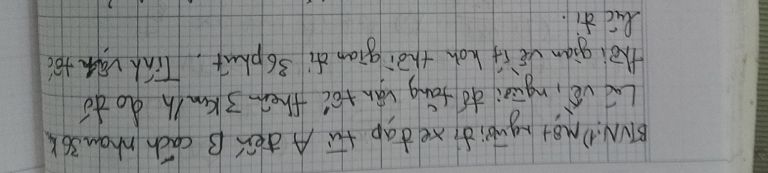 BTVN: 1) một người đi xe đạp từ A đến B cách nhau 36k
Lúc về, người đó tăng vận tốc thêm 3 Km/h do đó
thời gian về ít hơn thời gian đi 36 phút. Tính vận tốc
lúc đi.